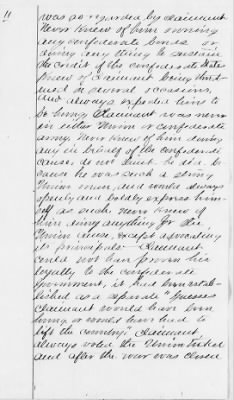 11
was so regarded by claimant
Never knew of him owning
any confederate bonds or
doing any thing to sustain
the credit of the confederate States
Knew of claimant being threat-
ened on several occasions
and always expected him to
be hung Claimant was never
in either Union or confederate
army Never knew of him doing
any in behalf of the confederate
cause, do not think he did be
cause he was such a strong
Union man and would always
openly and boldly express him-
self as such Never knew of
him doing anything for the
Union cause except advocating
its principals Claimant
could not have proven his
loyalty to the confederate
government, if it had been estab-
lished as a seperate "guesses
claimant would have been
hung or would have had to
left the country" Claimant
always voted the Union ticket
and after the war was closed